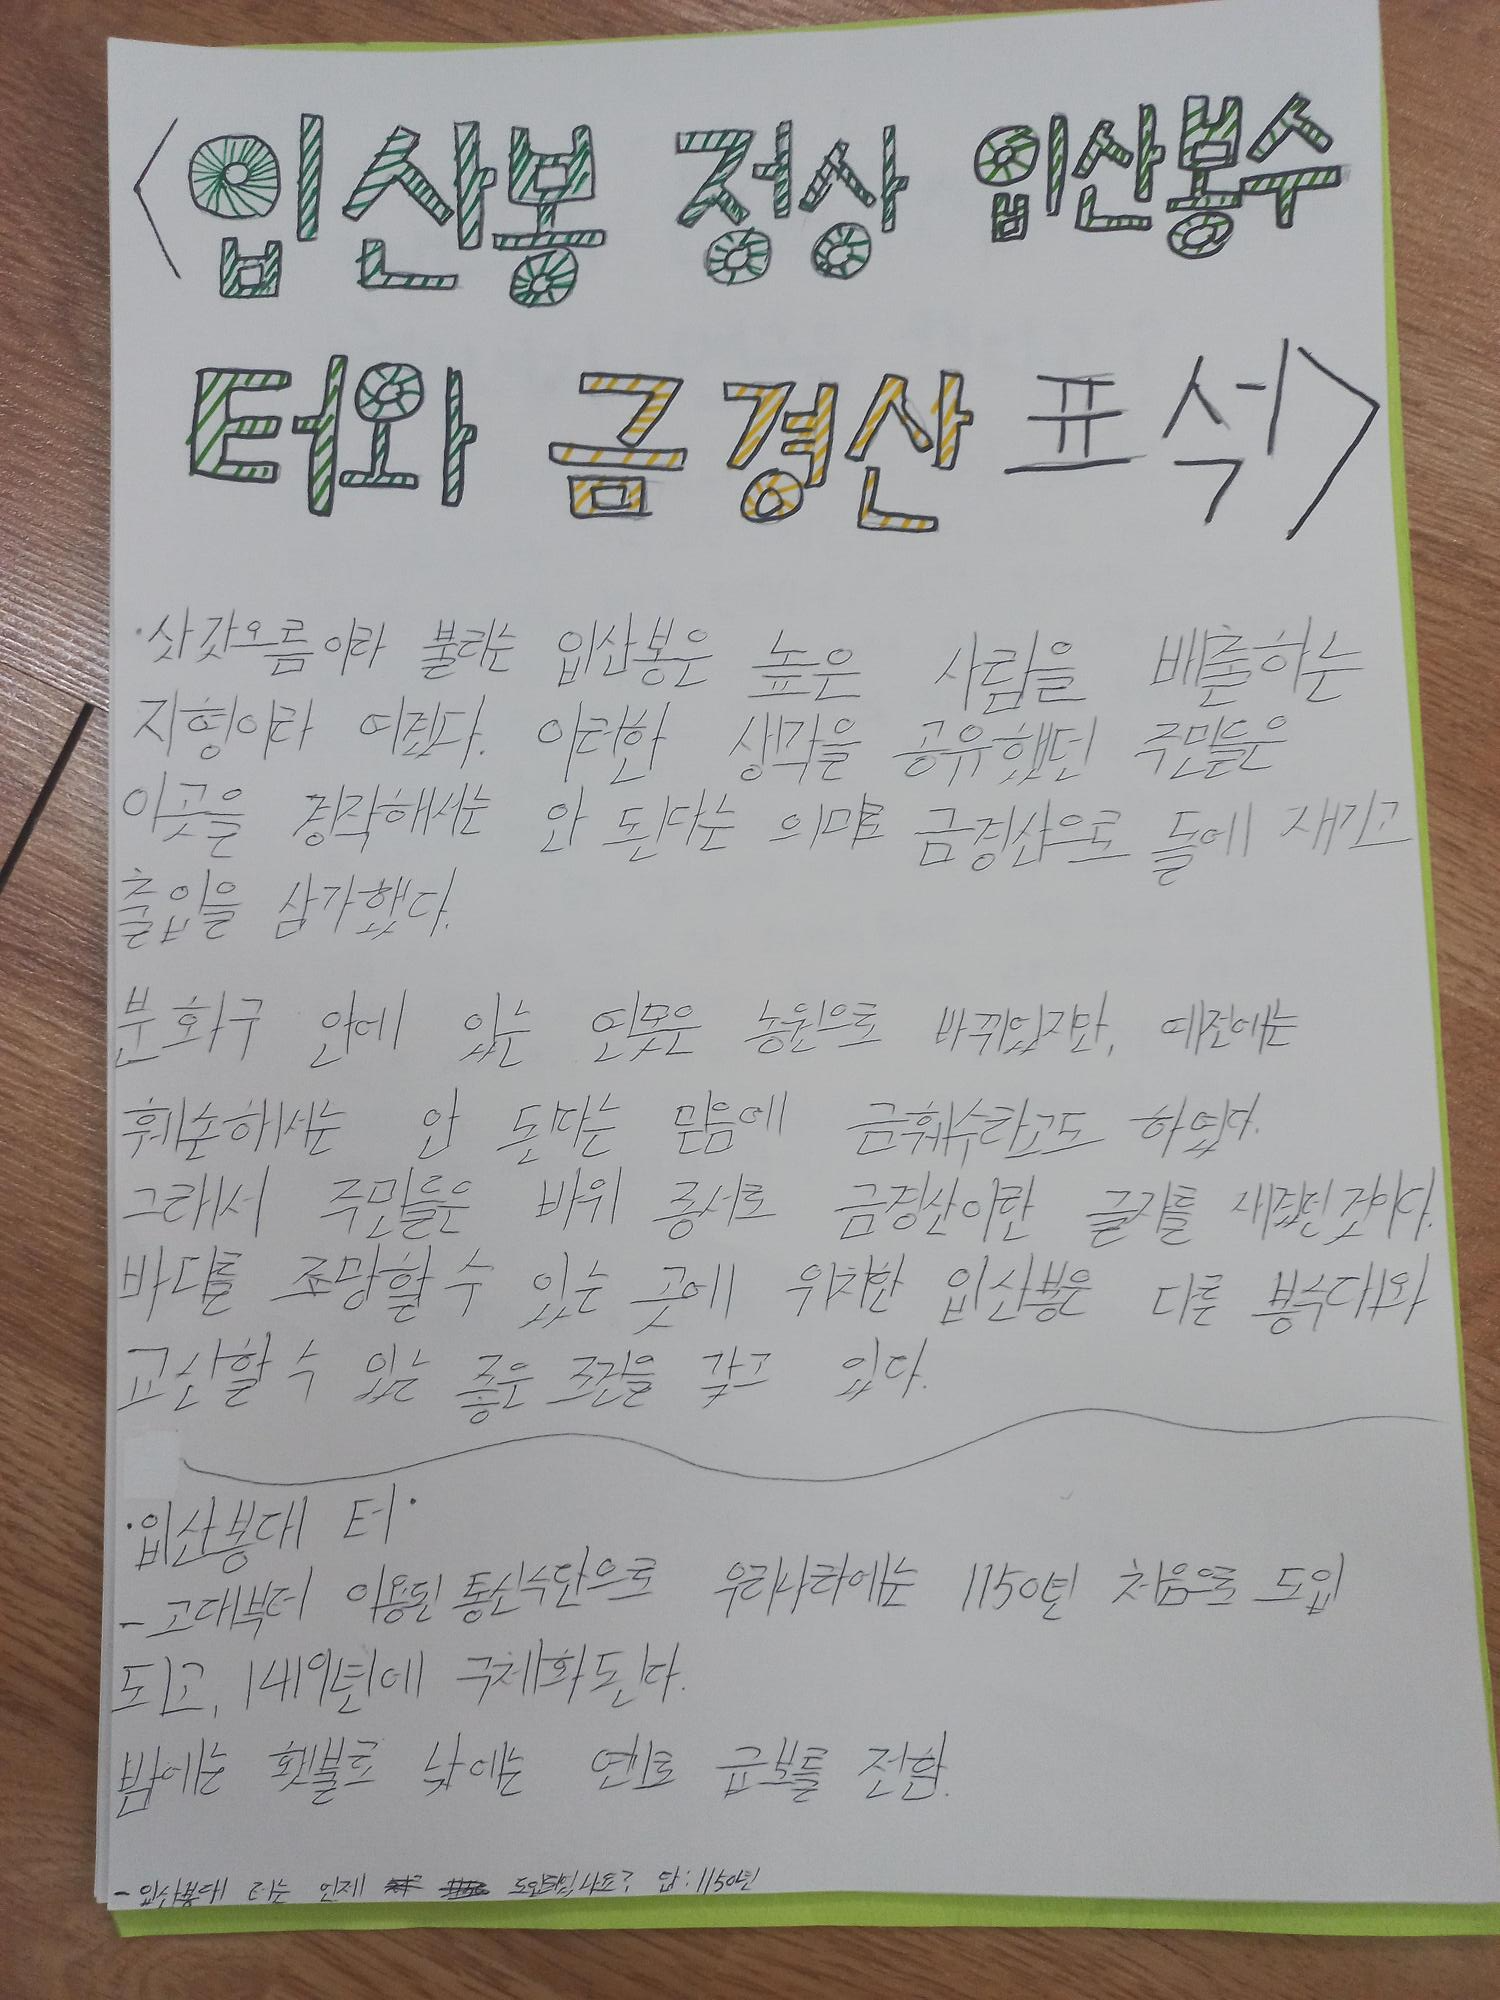 <입산봉 정상 입산봉수
터와 금경산 표석>
·삿갓오름이라 불리는 입산봉은 높은 사람을 배출하는
지형이라 여겼다. 이러한 생각을 공유했던 주민들은
이곳을 경작해서는 안 된다는 의미로 금경산으로 돌에 새기고
출입을 삼가했다.
분화구 안에 있는 연못은 농원으로 바뀌었지만, 예전에는
훼손해서는 안 된다는 믿음에 금훼수라고도 하였다.
그래서 주민들은 바위 등서로 금경산이란 글자를 새겼던 것이다.
바다를 조망할 수 있는 곳에 위치한 입산봉은 다른 봉수대와
교신할 수 있는 좋은 조건을 갖고 있다.
·입산봉대 터·
-고대부터 이용된 통신수단으로 우리나라에는 1150년 처음으로 도입
되고, 1419년에 구체화된다.
밤에는 횃불로 낮에는 연기로 급보를 전함.
-입산봉대 터는 언제 도입됐나요? 답: 1150년